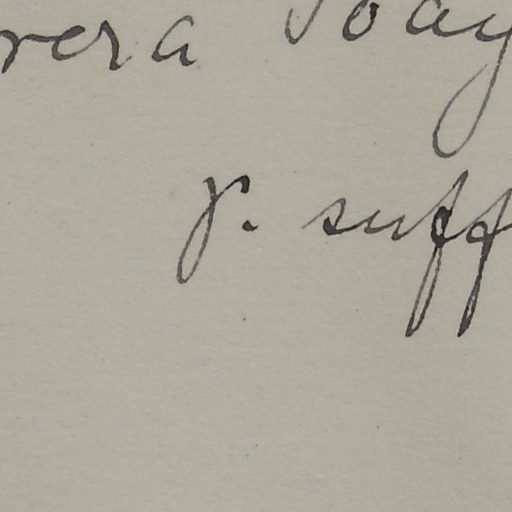 rera Joay
p. suff